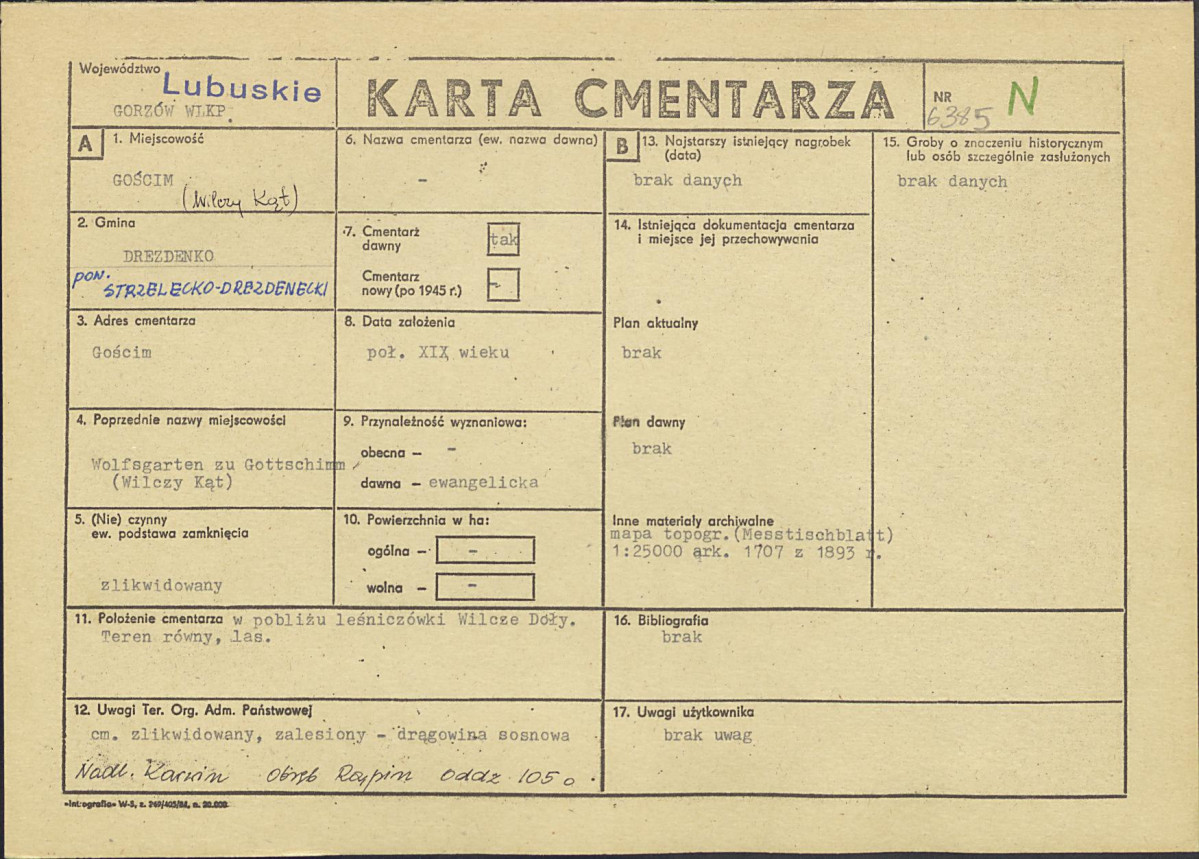 Województwo
Lubuskie
GORZÓW WLKP.
KARTA CMENTARZA
NR
6385
N
A
1. Miejscowość
GOŚCIM
(Wilczy Kąt)
2. Gmina
DREZDENKO
pow.
STRZELECKO-DREZDENECKI
3. Adres cmentarza
Gościm
4. Poprzednie nazwy miejscowości
Wolfsgarten zu Gottschimm
(Wilczy Kąt)
5. (Nie) czynny
ew. podstawa zamknięcia
zlikwidowany
6. Nazwa cmentarza (ew. nazwa dawna)
–
7. Cmentarz
dawny
tak
Cmentarz
nowy (po 1945 r.)
-
8. Data założenia
poł. XIX wieku
9. Przynależność wyznaniowa:
obecna – –
dawna – ewangelicka
10. Powierzchnia w ha:
ogólna – –
wolna – –
11. Położenie cmentarza w pobliżu leśniczówki Wilcze Doły.
Teren równy, las.
12. Uwagi Ter. Org. Adm. Państwowej
cm. zlikwidowany, zalesiony – drągowina sosnowa
Nadl. Karwin obręb Rąpin oddz. 105 o
B
13. Najstarszy istniejący nagrobek
(data)
brak danych
14. Istniejąca dokumentacja cmentarza
i miejsce jej przechowywania
Plan aktualny
brak
Plan dawny
brak
Inne materiały archiwalne
mapa topogr.(Messtischblatt)
1:25000 ark. 1707 z 1893 r.
15. Groby o znaczeniu historycznym
lub osób szczególnie zasłużonych
brak danych
16. Bibliografia
brak
17. Uwagi użytkownika
brak uwag